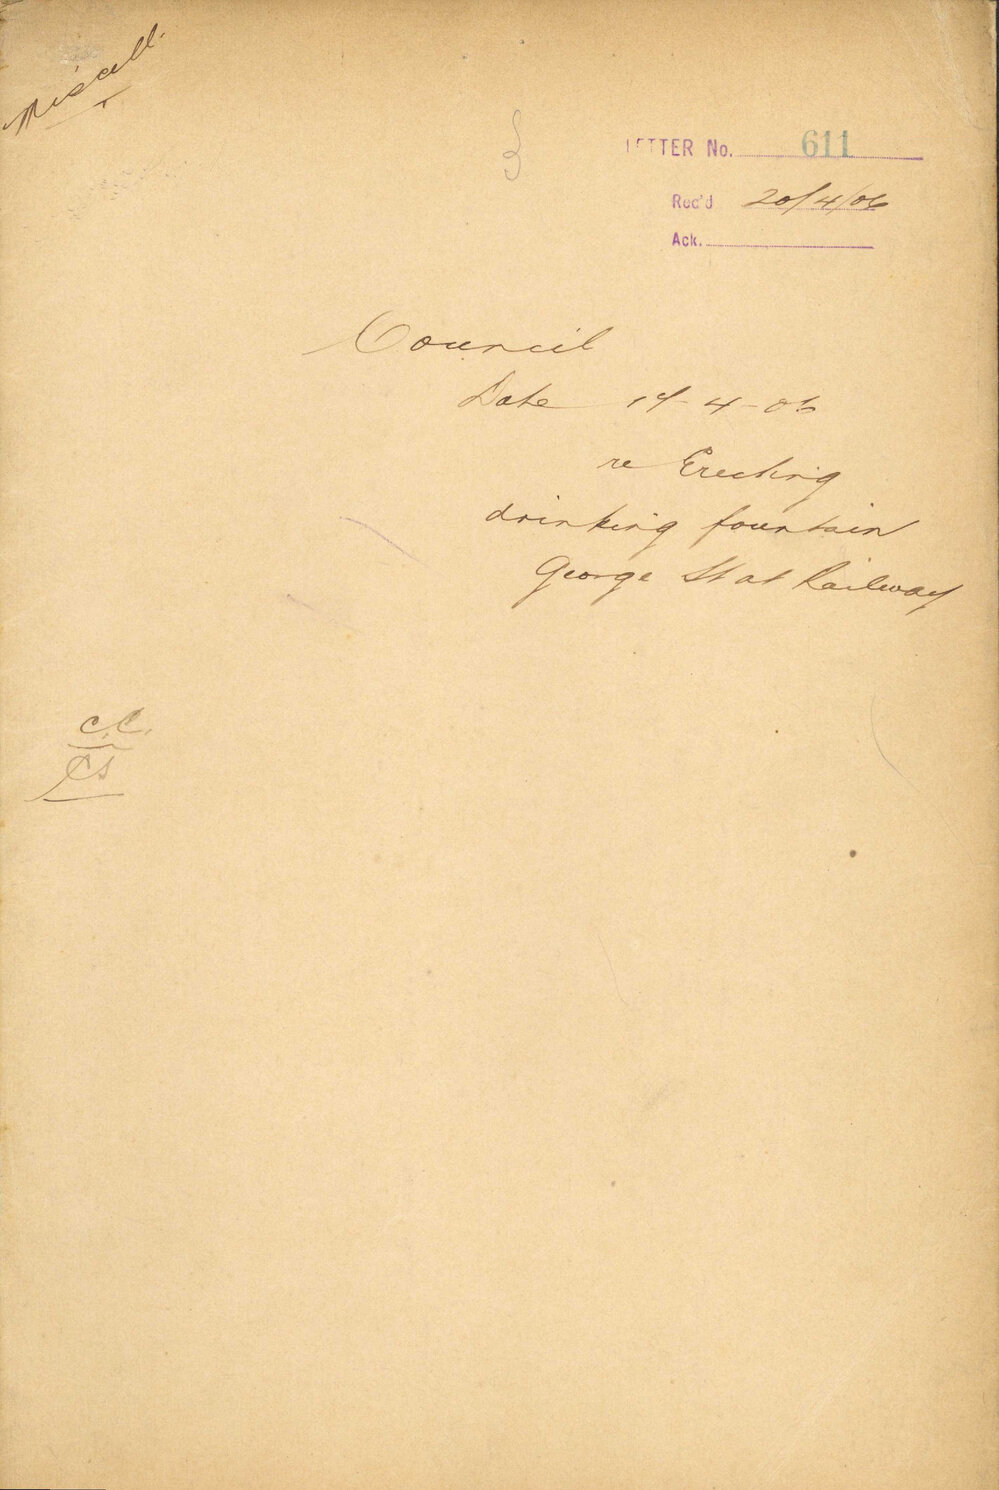 Miscell.
LETTER No. 611
Rec'd 20/4/06
Ack.
Council
Date 17-4-06
re Erecting
drinking fountain
George St at Railway
C.C.
CS